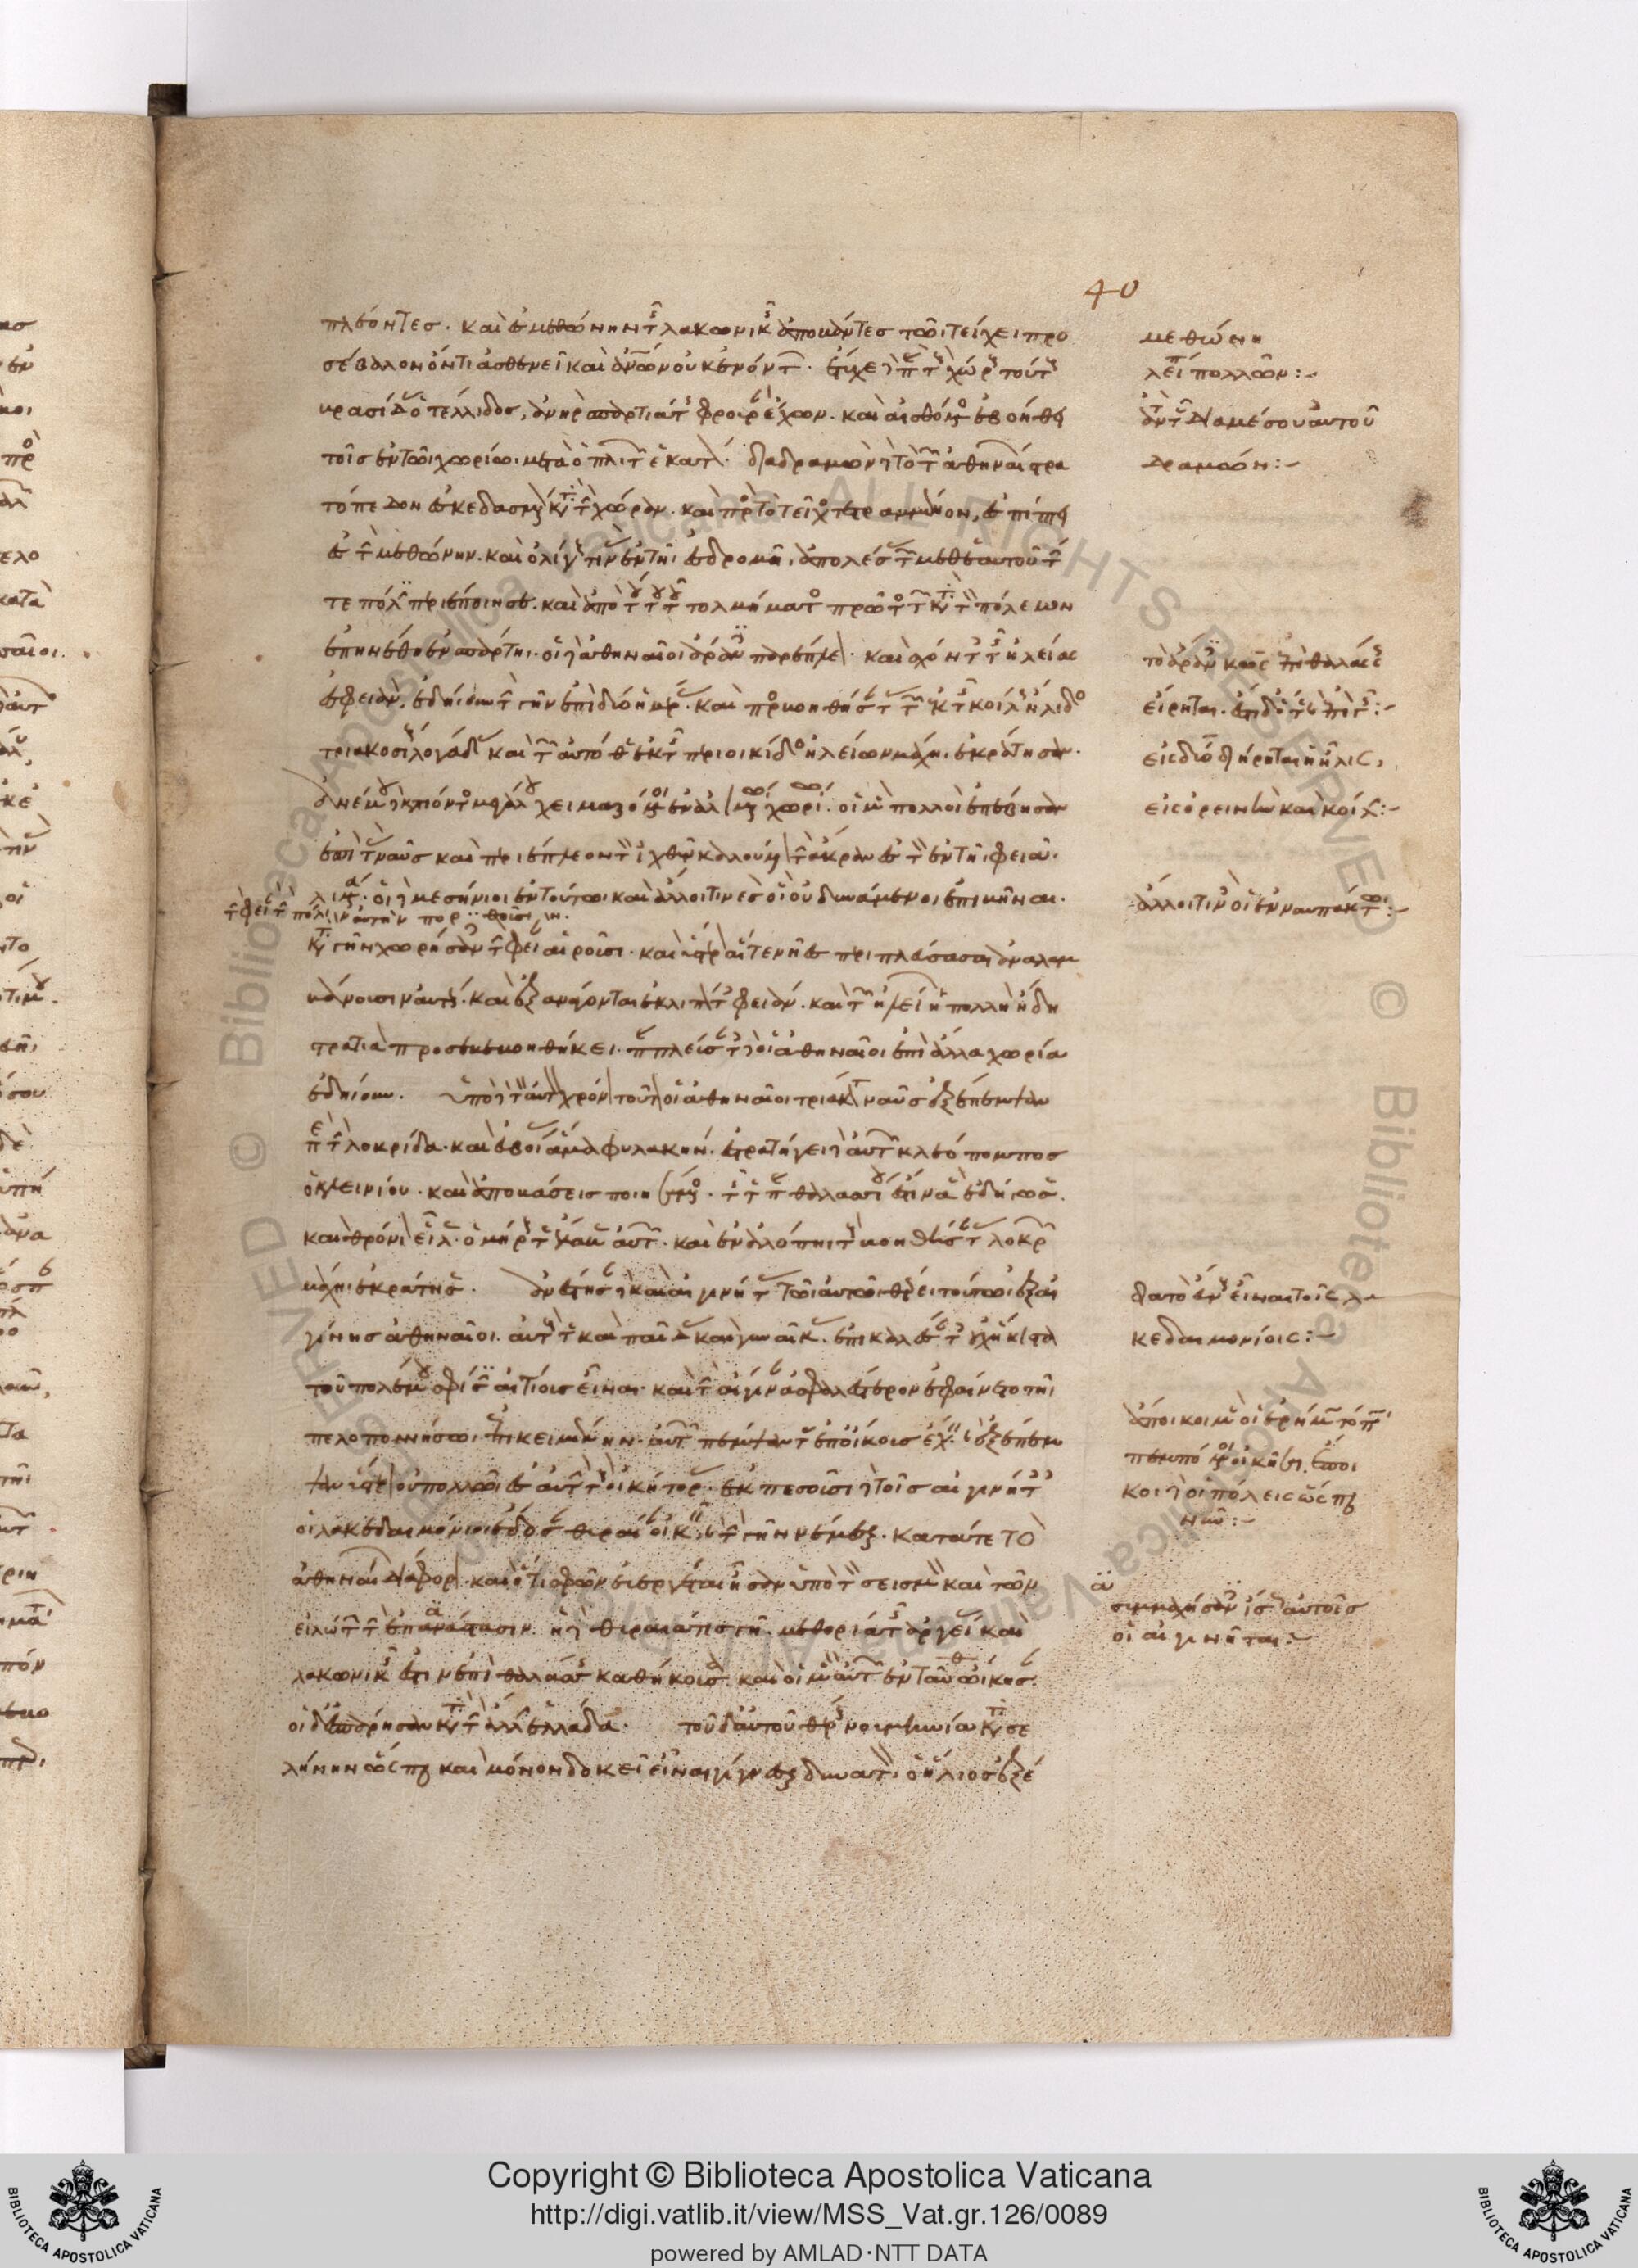 40
πλέοντες. καὶ ἐς μεθώνην τῆς λακωνικῆς ἀποβάντες τῶι τείχει προ
σέβαλον ὄντι ἀσθενεῖ καὶ ἀνθρώπων οὐκ ἐνόντων. ἔτυχε δὲ περὶ τοὺς χώρους τούτους
βρασίδας ὁ τέλλιδος, ἀνὴρ σπαρτιάτης φρουρὰν ἔχων. καὶ αἰσθόμενος ἐβοήθει
τοῖς ἐν τῶι χωρίωι μετὰ ὁπλιτῶν ἑκατόν. διαδραμὼν δὲ τὸ τῶν ἀθηναίων στρα
τόπεδον ἐσκεδασμένον κατὰ τὴν χώραν. καὶ πρὸς τὸ τεῖχος τετραμμένον, ἐσπίπτει
ἐς τὴν μεθώνην. καὶ ὀλίγους τινὰς ἐν τῆι ἐσδρομῆι ἀπολέσας τῶν μεθ' ἑαυτοῦ τήν
τε πόλιν περιεποίησε. καὶ ἀπὸ τούτου τοῦ τολμήματος πρῶτος τῶν κατὰ τὸν πόλεμον
ἐπηνέθη ἐν σπάρτηι. οἱ δὲ ἀθηναῖοι ἄραντες παρέπλεον. καὶ σχόντες τῆς ἠλείας
ἐς φειὰν, ἐδήιουν τὴν γῆν ἐπὶ δύο ἡμέρας. καὶ προσβοηθήσαντας τῶν ἐκ τῆς κοίλης ἤλιδος
τριακοσίους λογάδας καὶ τῶν αὐτόθεν ἐκ τῆς περιοικίδος ἠλείων μάχηι ἐκράτησαν.
ἀνέμου δὲ κατιόντος μεγάλου χειμαζόμενοι ἐν ἀλιμένωι χωρίωι. οἱ μὲν πολλοὶ ἐπέβησαν
ἐπὶ τὰς ναῦς καὶ περιέπλεον τὸν ἰχθῦν καλούμενον τὴν ἄκραν ἐς τὸν ἐν τῆι φειᾶι
λιμένα. οἱ δὲ μεσσήνιοι ἐν τούτωι καὶ ἄλλοι τινὲς οἱ οὐ δυνάμενοι ἐπιβῆναι.
κατὰ γῆν χωρήσαντες τὴν φειὰν αἱροῦσι. καὶ ὕστερον αἵ τε νῆες περιπλεύσασαι ἀναλαμ
βάνουσιν αὐτούς. καὶ ἐξανάγονται ἐκλιπόντες φειάν. καὶ τῶν ἠλείων ἡ πολλὴ ἤδη
στρατιὰ προσεβεβοηθήκει. παραπλεύσαντες δὲ οἱ ἀθηναῖοι ἐπὶ ἄλλα χωρία
ἐδήιουν. ὑπὸ δὲ τὸν αὐτὸν χρόνον τοῦτον οἱ ἀθηναῖοι τριάκοντα ναῦς ἐξέπεμψαν
περὶ τὴν λοκρίδα. καὶ εὐβοίας ἅμα φυλακήν. ἐστρατήγει δὲ αὐτῶν κλεόπομπος
ὁ κλεινίου. καὶ ἀποβάσεις ποιησάμενος τῆς τε παραθαλασσίου ἔστιν ἃ ἐδήιωσε.
καὶ θρόνιον εἷλεν. ὁμήρους τε ἔλαβεν αὐτῶν. καὶ ἐν ἀλόπηι τοὺς βοηθήσαντας λοκρῶν
μάχηι ἐκράτησεν. ἀνέστησαν δὲ καὶ αἰγινήτας τῶι αὐτῶι θέρει τούτωι ἐξ αἰ
γίνης ἀθηναῖοι. αὐτούς τε καὶ παῖδας καὶ γυναῖκας. ἐπικαλέσαντες οὐχ ἥκιστα
τοῦ πολέμου σφίσιν αἰτίους εἶναι. καὶ τὴν αἴγιναν ἀσφαλέστερον ἐφαίνετο τῆι
πελοποννήσωι ἐπικειμένην. αὐτῶν πέμψαντας ἐποίκους ἔχειν. καὶ ἐξέπεμ
ψαν ὕστερον οὐ πολλῶι ἐς αὐτὴν τοὺς οἰκήτορας. ἐκπεσοῦσι δὲ τοῖς αἰγινήταις
οἱ λακεδαιμόνιοι ἔδοσαν θυρέαν οἰκεῖν. καὶ τὴν γῆν νέμεσθαι. κατά τε τὸ
ἀθηναίων διάφορον καὶ ὅτι σφῶν εὐεργέται ἦσαν ὑπὸ τὸν σεισμὸν καὶ τῶν
εἱλώτων τὴν ἐπανάστασιν. ἡ δὲ θυρεᾶτις γῆ μεθορία τῆς ἀργείας καὶ
λακωνικῆς ἐστιν ἐπὶ θάλασσαν καθήκουσα. καὶ οἱ μὲν αὐτῶν ἐνταῦθα ὤικησαν.
οἱ δ' ἐσπάρησαν κατὰ τὴν ἄλλην ἑλλάδα. τοῦ δ' αὐτοῦ θέρους νουμηνίαι κατὰ σε
λήνην ὥσπερ καὶ μόνον δοκεῖ εἶναι γίγνεσθαι δυνατόν. ὁ ἥλιος ἐξέ
μεθώνη
λείπει πολλῶν:~
ἀντὶ τοῦ διαμέσου αὐτοῦ
δραμών:~
εἰς δύο διήρηται ἡ ἦλις,
εἰς ὀρεινὴν καὶ κοίλην:~
ἄλλοι τινὲς οἱ ἐν ναυπάκτωι:~
διὰ τὸ εὔνους εἶναι τοῖς λα
κεδαιμονίοις:~
συμμαχήσαντες αὐτοῖς
οἱ αἰγινῆται:~
Copyright © Biblioteca Apostolica Vaticana
http://digi.vatlib.it/view/MSS_Vat.gr.126/0089
powered by AMLAD·NTT DATA